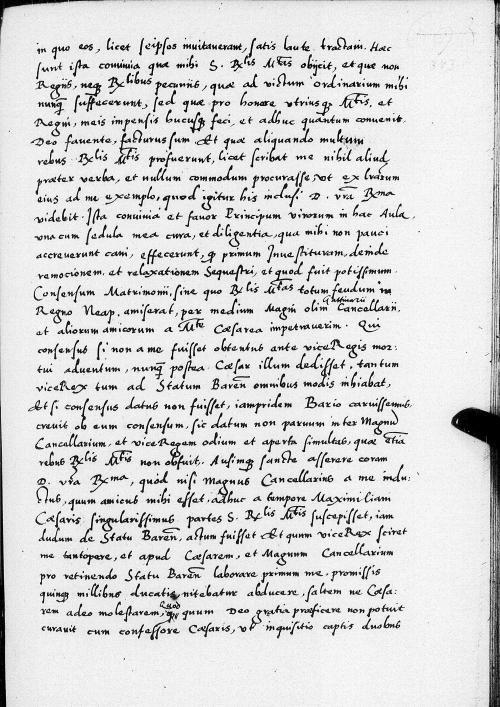 in quo eos, licet seipsos invitaverant, satis laute tractavi. Haec
sunt ista convivia quae mihi S. Rx̃lis Mtas obijcit, et quae non
Regiis, neqꝫ Rx̃libus pecuniis, quae ad victum ordinarium mihi
nunqꝫ suffecerunt, sed quae pro honore utriusqꝫ Mtis, et
Regni, meis impensis hucusqꝫ feci, et adhuc quantum convenit
Deo favente, facturus sum. Et quae aliquando multum
rebus Rx̃lis Mtis profuerunt, licet scribat me nihil aliud
praeter verba, et nullum commodum procurasse, ut ex lrarum
eius ad me exemplo, quod igitur his inclusi D. vra Rx̃ma
videbit. Ista convivia et favor Principum virorum in hac Aula,
una cum sedula mea cura, et diligentia, qua mihi non pauci
accreverunt cani, effecerunt, qꝫ primum Investituram, deinde
remocionem, et relaxationem Sequestri, et quod fuit potissimum
Consensum Matrimonii, sine quo Rx̃lis Mtas totum feudum in
Regno Neap. amiserat, per medium Magni olim Cancellarii,
et aliorum amicorum a Mte Caesarea impetraverim. Qui
consensus si non a me fuisset obtentus ante viceRegis mor-
tui adventum, nunqꝫ postea Caesar illum dedisset, tantum
viceRex tum ad Statum Baren̄ omnibus modis inhiabat,
Et si consensus datus non fuisset, iampridem Bario caruissemus.
crevit ob eum consensum, sic datum non parvum inter Magnū
Cancellarium, et viceRegem odium et aperta simultas, quae etiā
rebus Rx̃lis Mtis non obfuit. Ausimqꝫ sancte asserere coram
D. vra Rx̃ma, quod nisi Magnus Cancellarius a me indu-
ctus, quum amicus mihi esset adhuc a tempore Maximiliani
Caesaris singularissimus partes S. Rx̃lis Mtis suscepisset, iam
dudum de Statu Baren̄ actum fuisset. Et quum viceRex sciret
me tantopere, et apud Caesarem, et Magnum Cancellarium
pro retinendo Statu Baren̄ laborare primum me promissis
quinqꝫ millibus ducatis nitebatur abducere, saltem ne Caesa-
rem adeo molestarem, quod quum Deo gratia proficere non potuit
curavit cum confessore Caesaris, ut inquisitio captis duobus